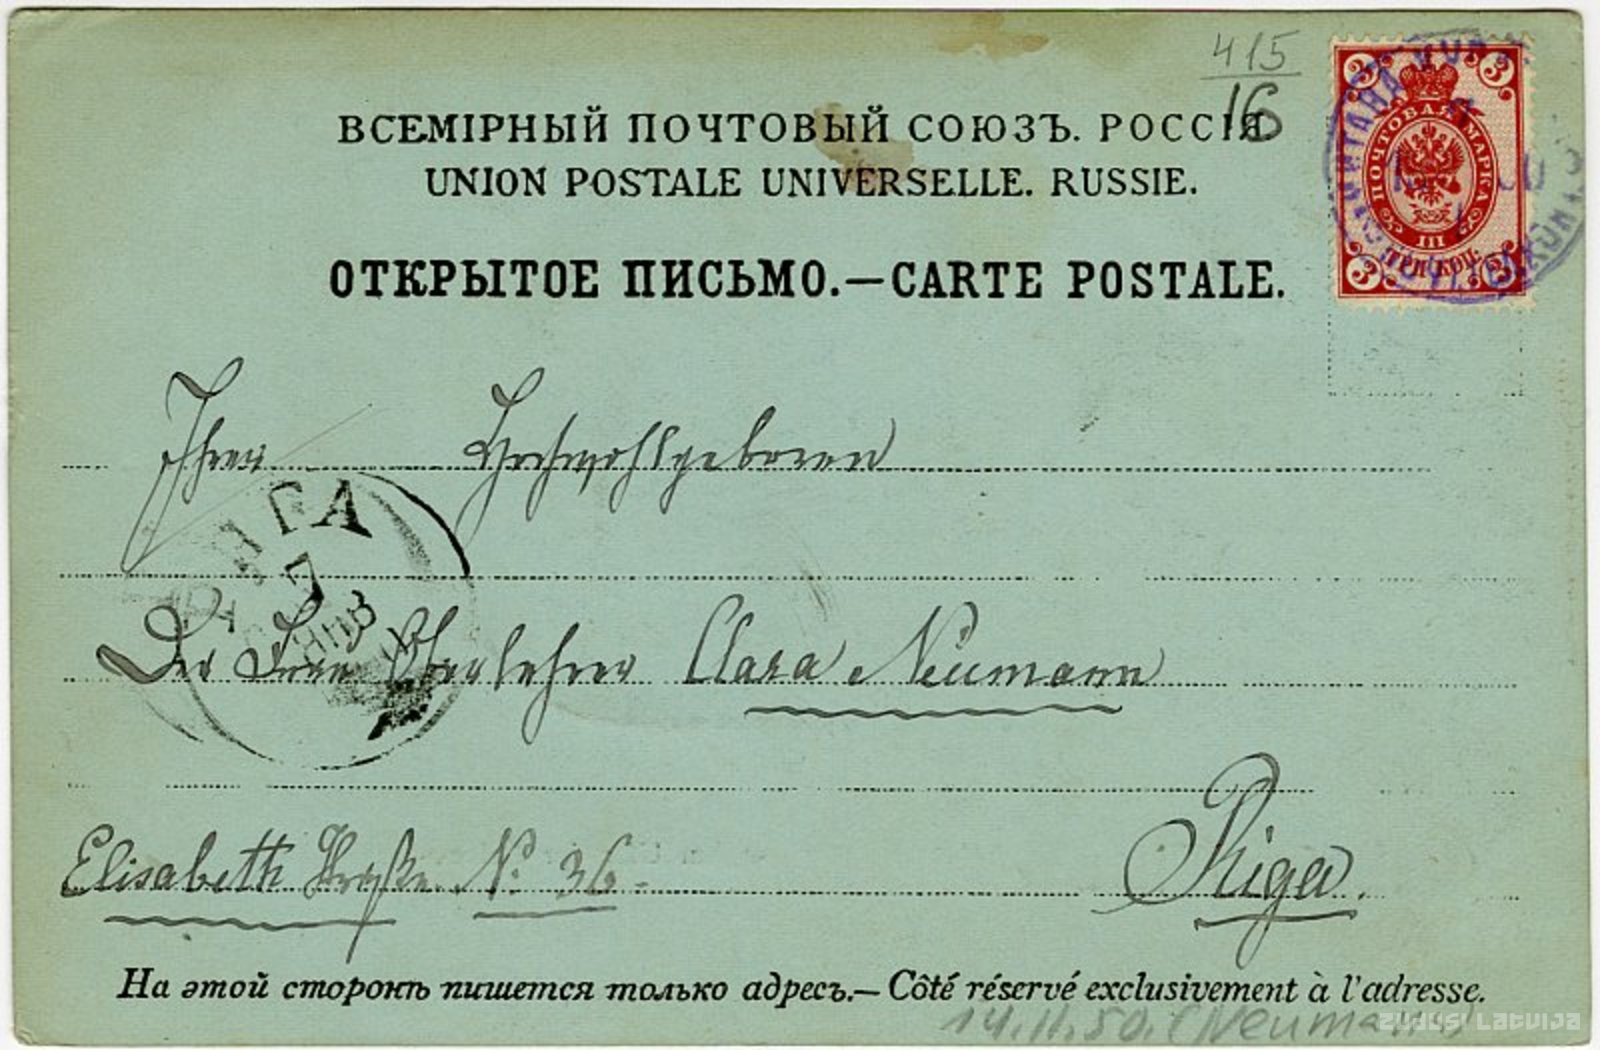 415
16
ВСЕМІРНЫЙ ПОЧТОВЫЙ СОЮЗЪ. РОССІЯ.
UNION POSTALE UNIVERSELLE. RUSSIE.
ОТКРЫТОЕ ПИСЬМО.—CARTE POSTALE.
3 3
ПОЧТОВАЯ МАРКА
III
ТРИ КОП.
3 3
Ihrer Hochwohlgeboren
РИГА
7
Der Frau Oberlehrer Clara Neumann
Elisabeth Straße N. 36.
Riga.
На этой сторонѣ пишется только адресъ.— Côté réservé exclusivement à l'adresse.
14.11.50. (Neumann)
ZUDUSI LATVIJA